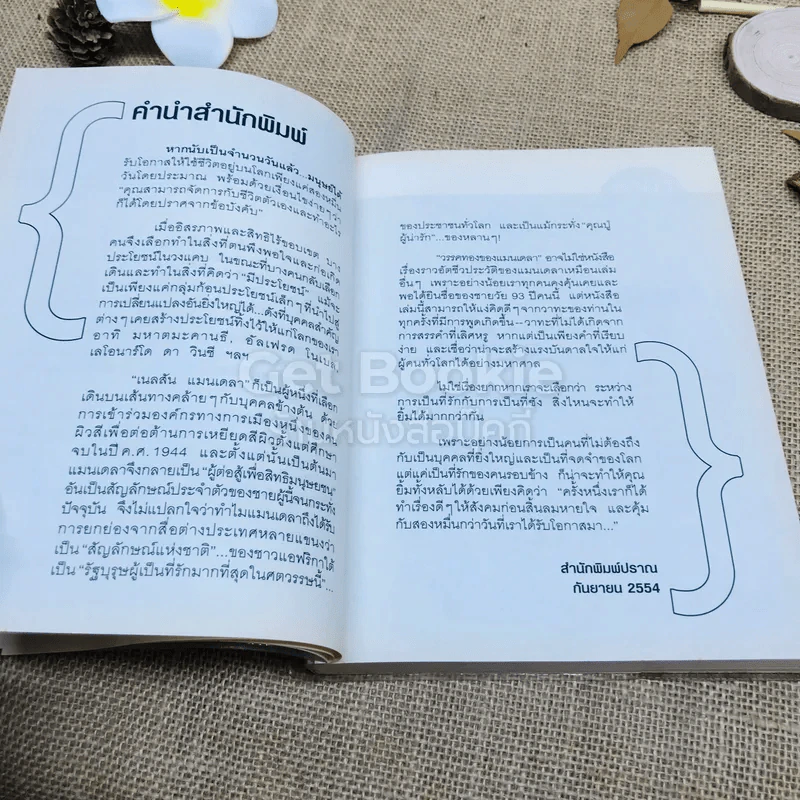 คำนำสำนักพิมพ์
หากนับเป็นจำนวนวันแล้ว...มนุษย์ได้
รับโอกาสให้ใช้ชีวิตอยู่บนโลกเพียงแค่สองหมื่น
วันโดยประมาณ พร้อมด้วยเงื่อนไขง่ายๆ ว่า
"คุณสามารถจัดการกับชีวิตตัวเองและทำอะไร
ก็ได้โดยปราศจากข้อบังคับ"
เมื่ออิสรภาพและสิทธิไร้ขอบเขต บาง
คนจึงเลือกทำในสิ่งที่ตนพึงพอใจและก่อเกิด
ประโยชน์ในวงแคบ ในขณะที่บางคนกลับเลือก
เดินและทำในสิ่งที่คิดว่า "มีประโยชน์" แม้จะ
เป็นเพียงแค่กลุ่มก้อนประโยชน์เล็กๆ ที่นำไปสู่
การเปลี่ยนแปลงอันยิ่งใหญ่ได้...ดังที่บุคคลสำคัญ
ต่างๆ เคยสร้างประโยชน์ทิ้งไว้ให้แก่โลกของเรา
อาทิ มหาตมะคานธี, อัลเฟรด โนเบล,
เลโอนาร์โด ดา วินซี ฯลฯ
"เนลสัน แมนเดลา" ก็เป็นผู้หนึ่งที่เลือก
เดินบนเส้นทางคล้ายๆ กับบุคคลข้างต้น ด้วย
การเข้าร่วมองค์กรทางการเมืองหนึ่งของคน
ผิวสีเพื่อต่อต้านการเหยียดสีผิวตั้งแต่ศึกษา
จบในปี ค.ศ. 1944 และตั้งแต่นั้นเป็นต้นมา
แมนเดลาจึงกลายเป็น "ผู้ต่อสู้เพื่อสิทธิมนุษยชน"
อันเป็นสัญลักษณ์ประจำตัวของชายผู้นี้จนกระทั่ง
ปัจจุบัน จึงไม่แปลกใจว่าทำไมแมนเดลาถึงได้รับ
การยกย่องจากสื่อต่างประเทศหลายแขนงว่า
เป็น "สัญลักษณ์แห่งชาติ"...ของชาวแอฟริกาใต้
เป็น "รัฐบุรุษผู้เป็นที่รักมากที่สุดในศตวรรษนี้"...
ของประชาชนทั่วโลก และเป็นแม้กระทั่ง "คุณปู่
ผู้น่ารัก"...ของหลานๆ!
"วรรคทองของแมนเดลา" อาจไม่ใช่หนังสือ
เรื่องราวอัตชีวประวัติของแมนเดลาเหมือนเล่ม
อื่นๆ เพราะอย่างน้อยเราทุกคนคงคุ้นเคยและ
พอได้ยินชื่อของชายวัย 93 ปีคนนี้ แต่หนังสือ
เล่มนี้สามารถให้แง่คิดดีๆ จากวาทะของท่านใน
ทุกครั้งที่มีการพูดเกิดขึ้น--วาทะที่ไม่ได้เกิดจาก
การสรรคำที่เลิศหรู หากแต่เป็นเพียงคำที่เรียบ
ง่าย และเชื่อว่าน่าจะสร้างแรงบันดาลใจให้แก่
ผู้คนทั่วโลกได้อย่างมหาศาล
ไม่ใช่เรื่องยากหากเราจะเลือกว่า ระหว่าง
การเป็นที่รักกับการเป็นที่ชัง สิ่งไหนจะทำให้
ยิ้มได้มากกว่ากัน
เพราะอย่างน้อยการเป็นคนที่ไม่ต้องถึง
กับเป็นบุคคลที่ยิ่งใหญ่และเป็นที่จดจำของโลก
แต่แค่เป็นที่รักของคนรอบข้าง ก็น่าจะทำให้คุณ
ยิ้มทั้งหลับได้ด้วยเพียงคิดว่า "ครั้งหนึ่งเราก็ได้
ทำเรื่องดีๆ ให้สังคมก่อนสิ้นลมหายใจ และคุ้ม
กับสองหมื่นกว่าวันที่เราได้รับโอกาสมา..."
สำนักพิมพ์ปราณ
กันยายน 2554
Get Bookie